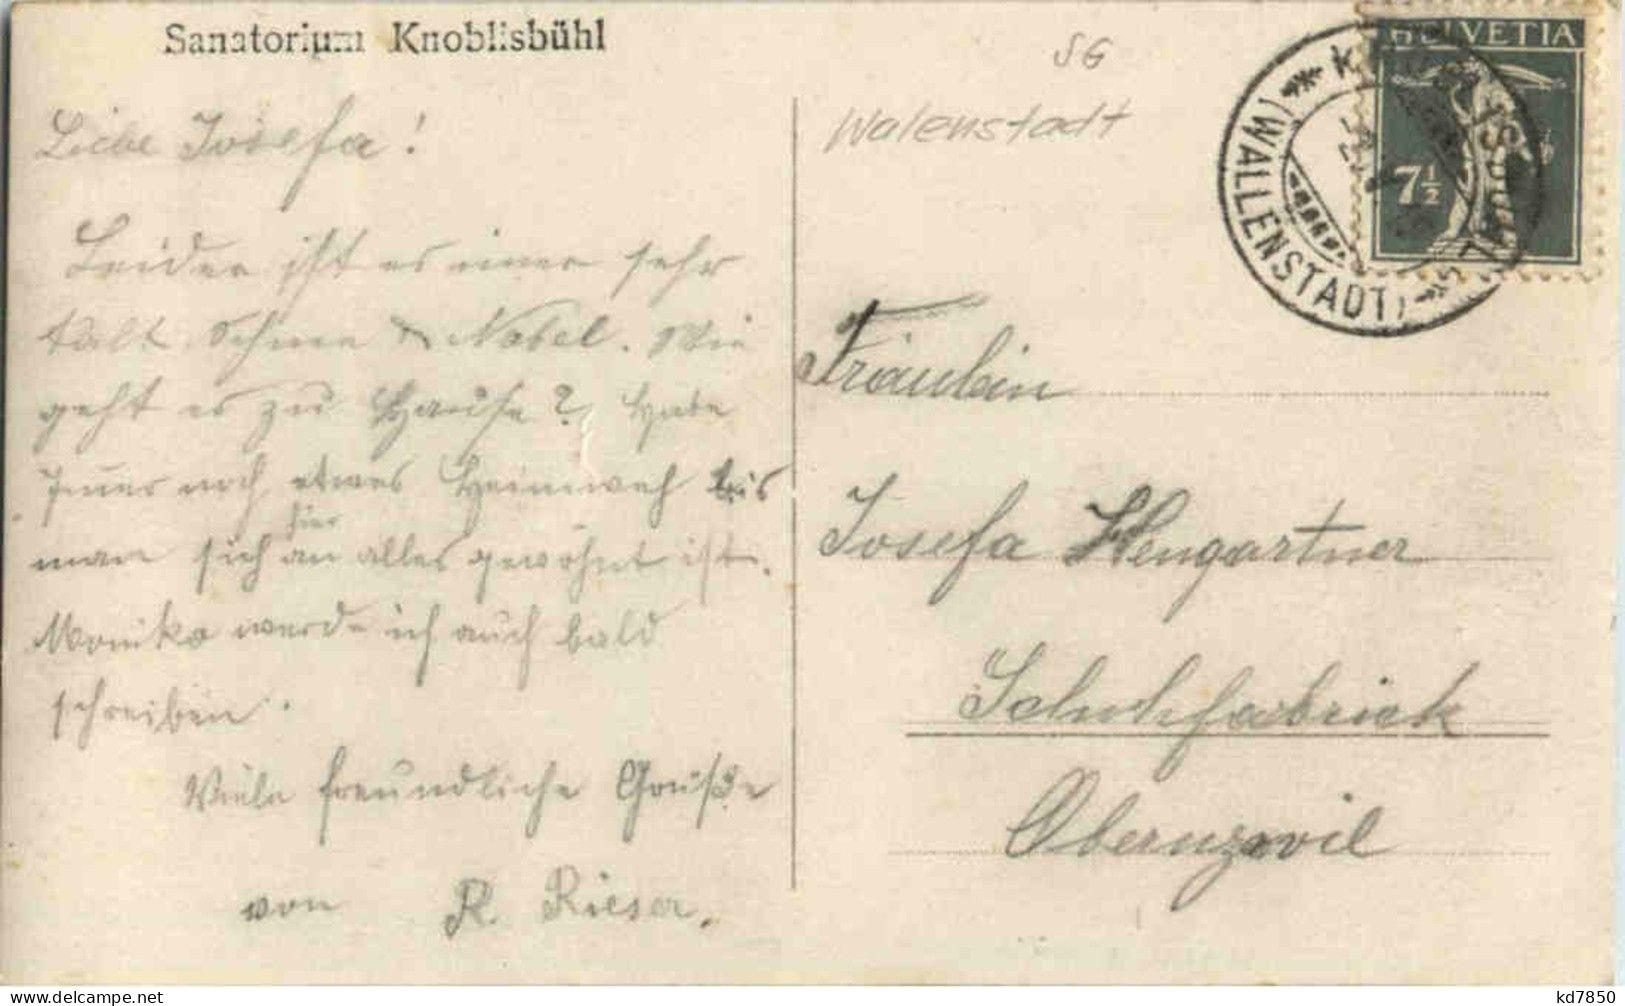 Sanatorium Knoblisbühl
SG
Walenstadt
HELVETIA
7½
(WALLENSTADT)
Liebe Josefa!
Leider ist es immer sehr
kalt. Schnee & Nebel. Wie
geht es zu Hause? Habe
immer noch etwas Heimweh bis
man sich hier an alles gewöhnt ist.
Monika werde ich auch bald
schreiben.
Viele freundliche Grüße
von R. Rieser.
Fräulein
Josefa Hengartner
Schuhfabrick
Obernzwil
kd7850